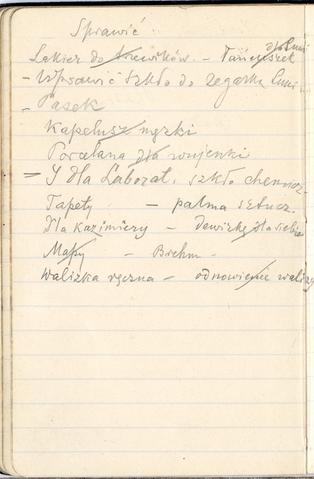 Sprawić
Lakier do trzewików. – Łańcuszek dla Luni
– Wprawić szkło do zegarka Luni
– Pasek
Kapelusz męzki
Porcelana dla wujenki
= Dla Laborat. szkło chemicz.
Tapety – palma sztucz.
Dla Kazimiery – dewizkę dla siebie
Mapy – Brehm
Walizka ręczna – odnowienie waliz